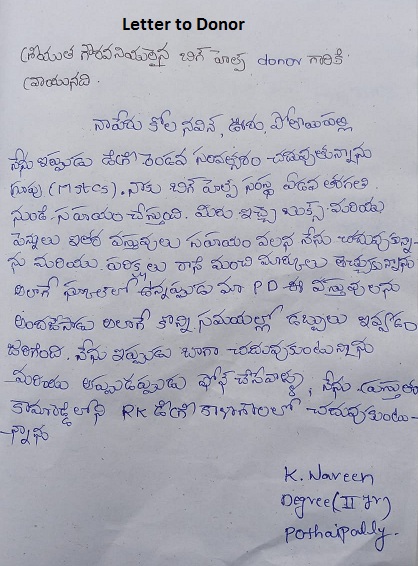 Letter to Donor
శ్రీయుత గౌరవనియులైన బిగ్ హెల్ప్ donor గారికి
వ్రాయునది.
నాపేరు కోల నవీన్, ఊరు, పోతాయిపల్లి
నేను ఇప్పుడు డిగ్రీ రెండవ సంవత్సరం చదువుతున్నాను
గ్రూపు (MStCs). నాకు బిగ్ హెల్ప్ సంస్థ ఏడవ తరగతి
నుండి సహాయం చేస్తుంది. మీరు ఇచ్చే బుక్స్ మరియు
పెన్నులు ఇతర వస్తువులు సహాయం వలన నేను చదువుకున్నా-
ను మరియు పరిక్షలు రాసి మంచి మార్కులు తెచ్చుకున్నాను
అలాగే స్కూల్ లో ఉన్నప్పుడు మా PD ఈ వస్తువులను
అందజేసాడు అలాగే కొన్ని సమయాల్లో డబ్బులు ఇవ్వడం
జరిగింది. నేను ఇప్పుడు బాగా చదువుకుంటున్నాను
మరియు అప్పుడప్పుడు ఫోన్ చేసేవాళ్ళు, నేను ప్రస్తుతం
కామారెడ్డి లోని RK డిగ్రీ కాళాశాలలో చదువుకుంటు-
-న్నాను
K. Naveen
Degree (II yr)
Pothaipally.